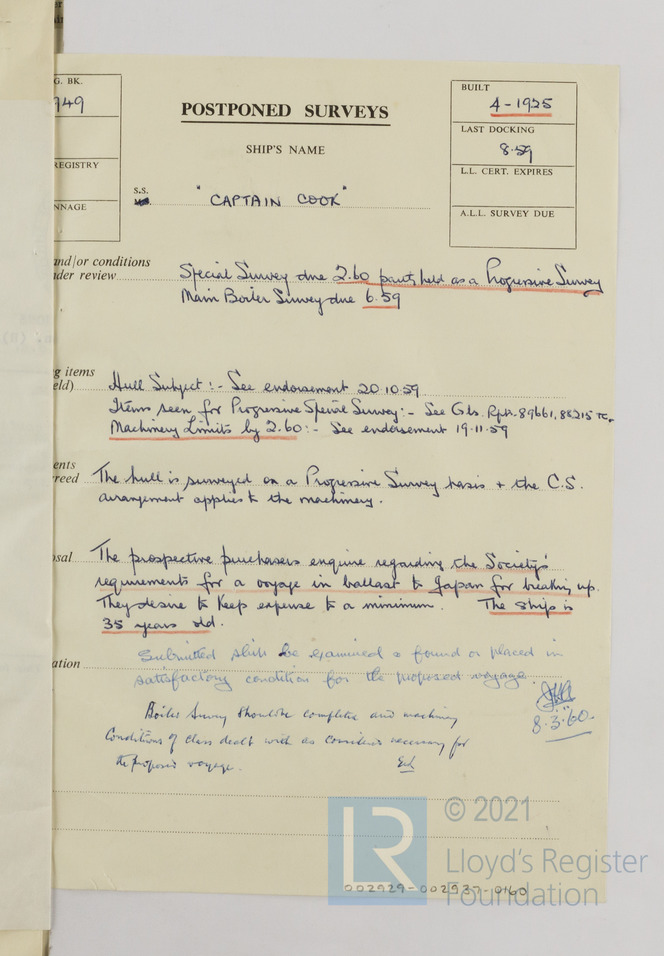 G. BK.
949
REGISTRY
NNAGE
POSTPONED SURVEYS
SHIP'S NAME
S.S.
"CAPTAIN COOK"
BUILT
4-1925
LAST DOCKING
8.59
L.L. CERT. EXPIRES
A.L.L. SURVEY DUE
and/or conditions
der review
Special Survey due 2.60 partly held as a Progressive Survey
Main Boiler Survey due 6.59
g items
eld)
Hull Subject:- See endorsement 20.10.59
Items seen for Progressive Special Survey:- See Gls. Rpts. 89661, 88215 etc.
Machinery Limits by 2.60:- See endorsement 19.11.59
ents
reed
The hull is surveyed on a Progressive Survey basis + the C.S.
arrangement applies to the machinery.
sal
The prospective purchasers enquire regarding the Society's
requirements for a voyage in ballast to Japan for breaking up.
They desire to keep expense to a minimum. The ship is
35 years old.
ation
Submitted ship be examined & found or placed in
satisfactory condition for the proposed voyage.
8.3.60.
Boiler Survey should be completed and machinery
Conditions of class dealt with as considered necessary for
the proposed voyage.
© 2021
LR
Lloyd's Register
Foundation
002929-002937-0160